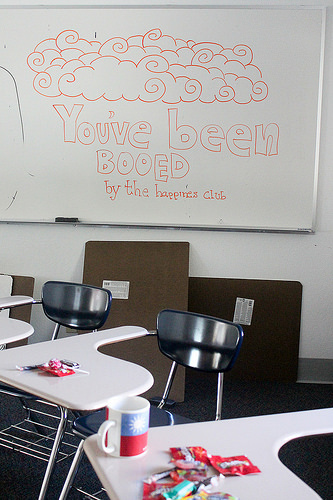 You've been
BOOED
by the happiness club